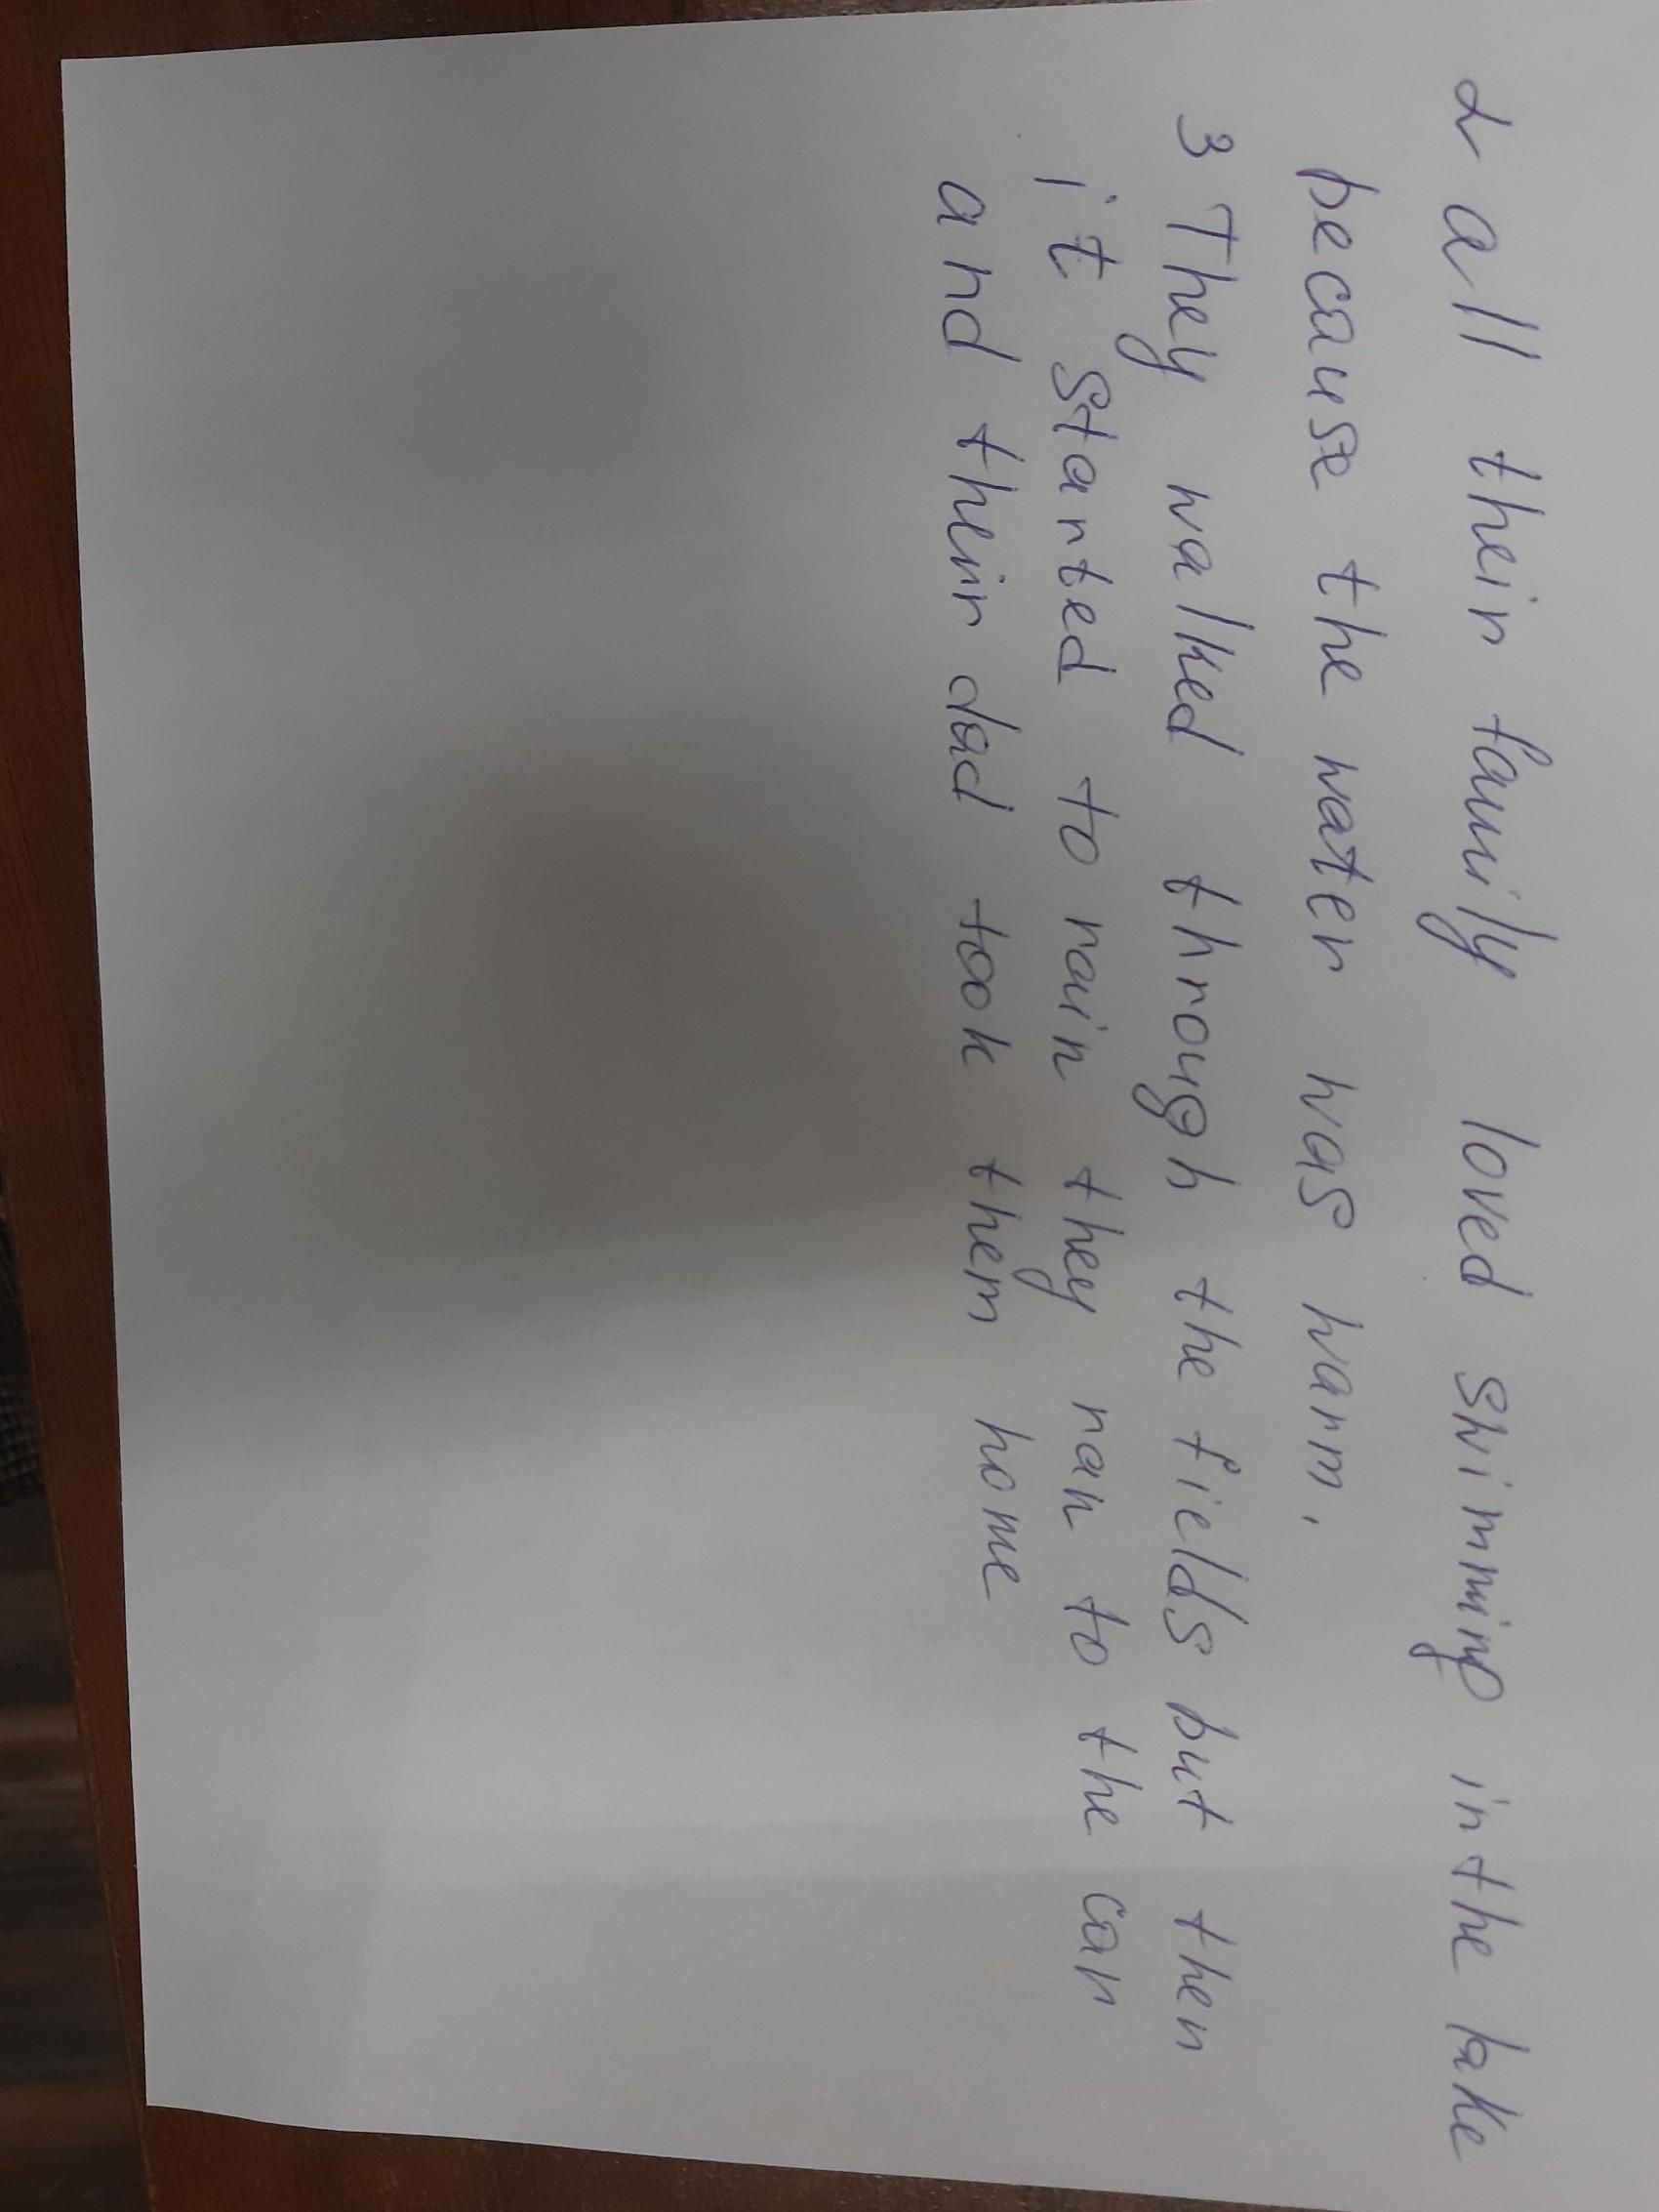 2 all their family loved swimming in the lake
because the water was warm.
3 They walked through the fields but then
it started to rain they ran to the car
and their dad took them home